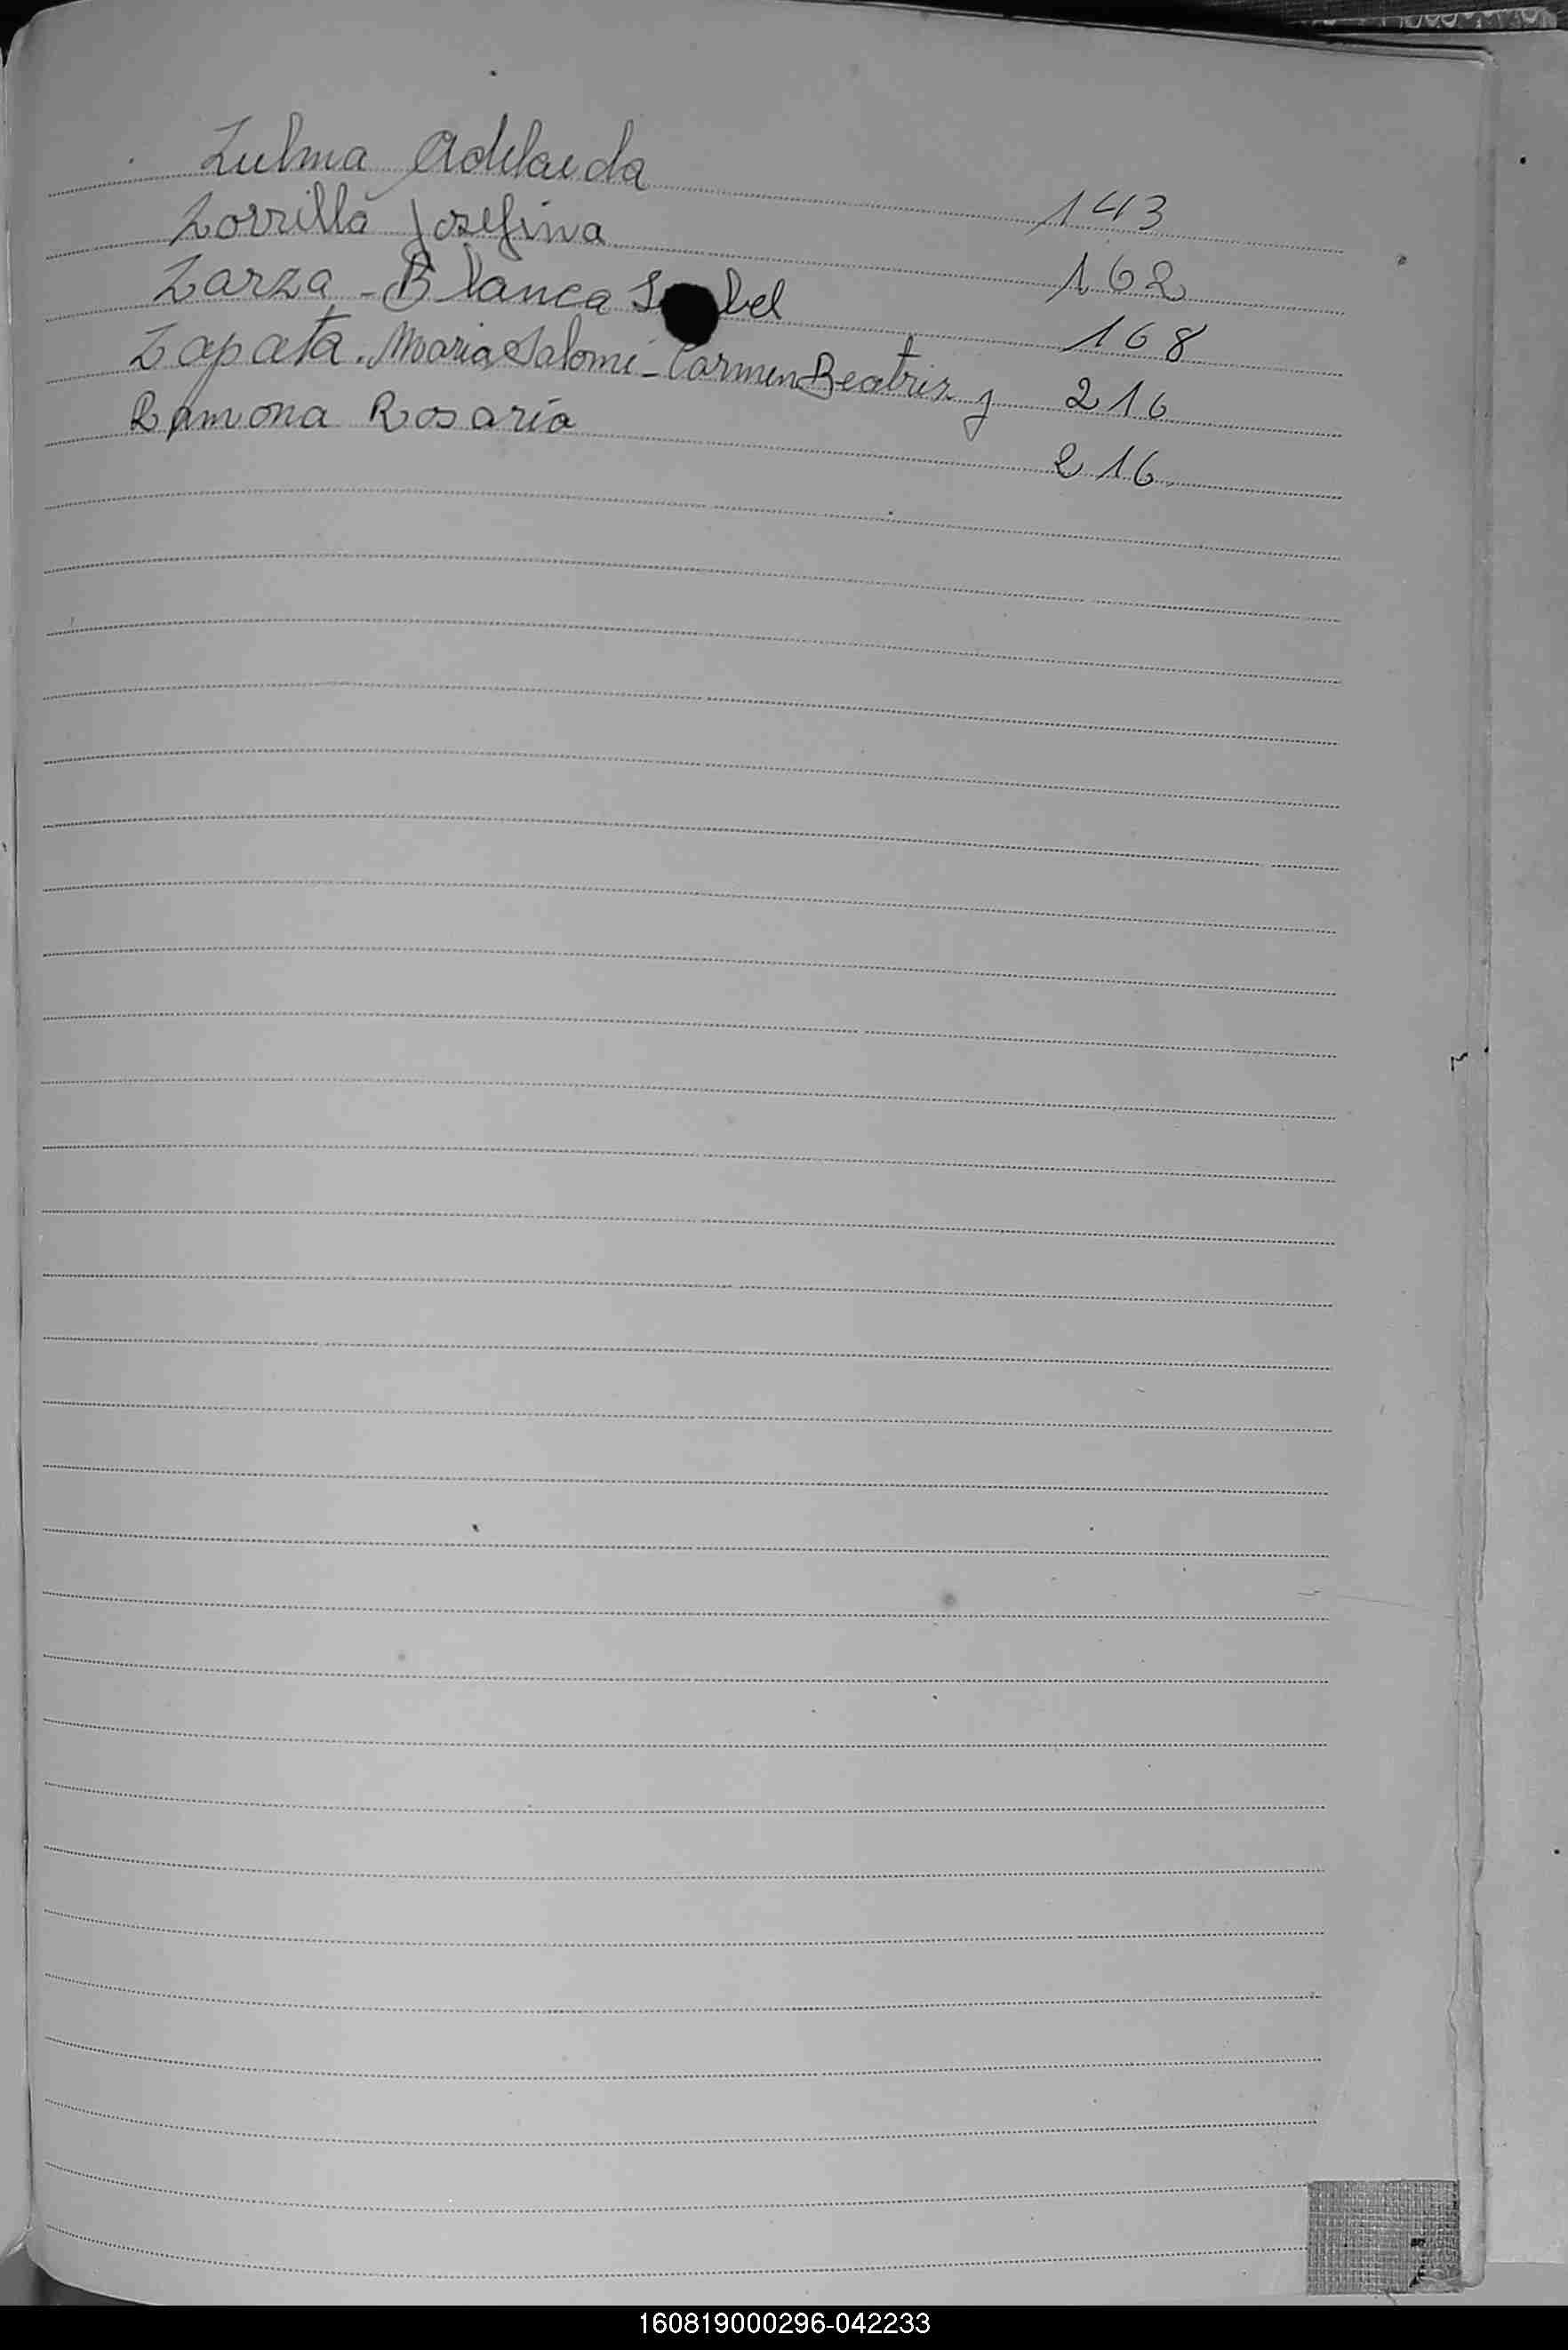 Zulma Adelaida 143
Zorrilla Josefina 162
Zarza - Blanca Isabel 168
Zapata. Maria Salomé - Carmen Beatriz y 216
Ramona Rosaria 216
160819000296-042233